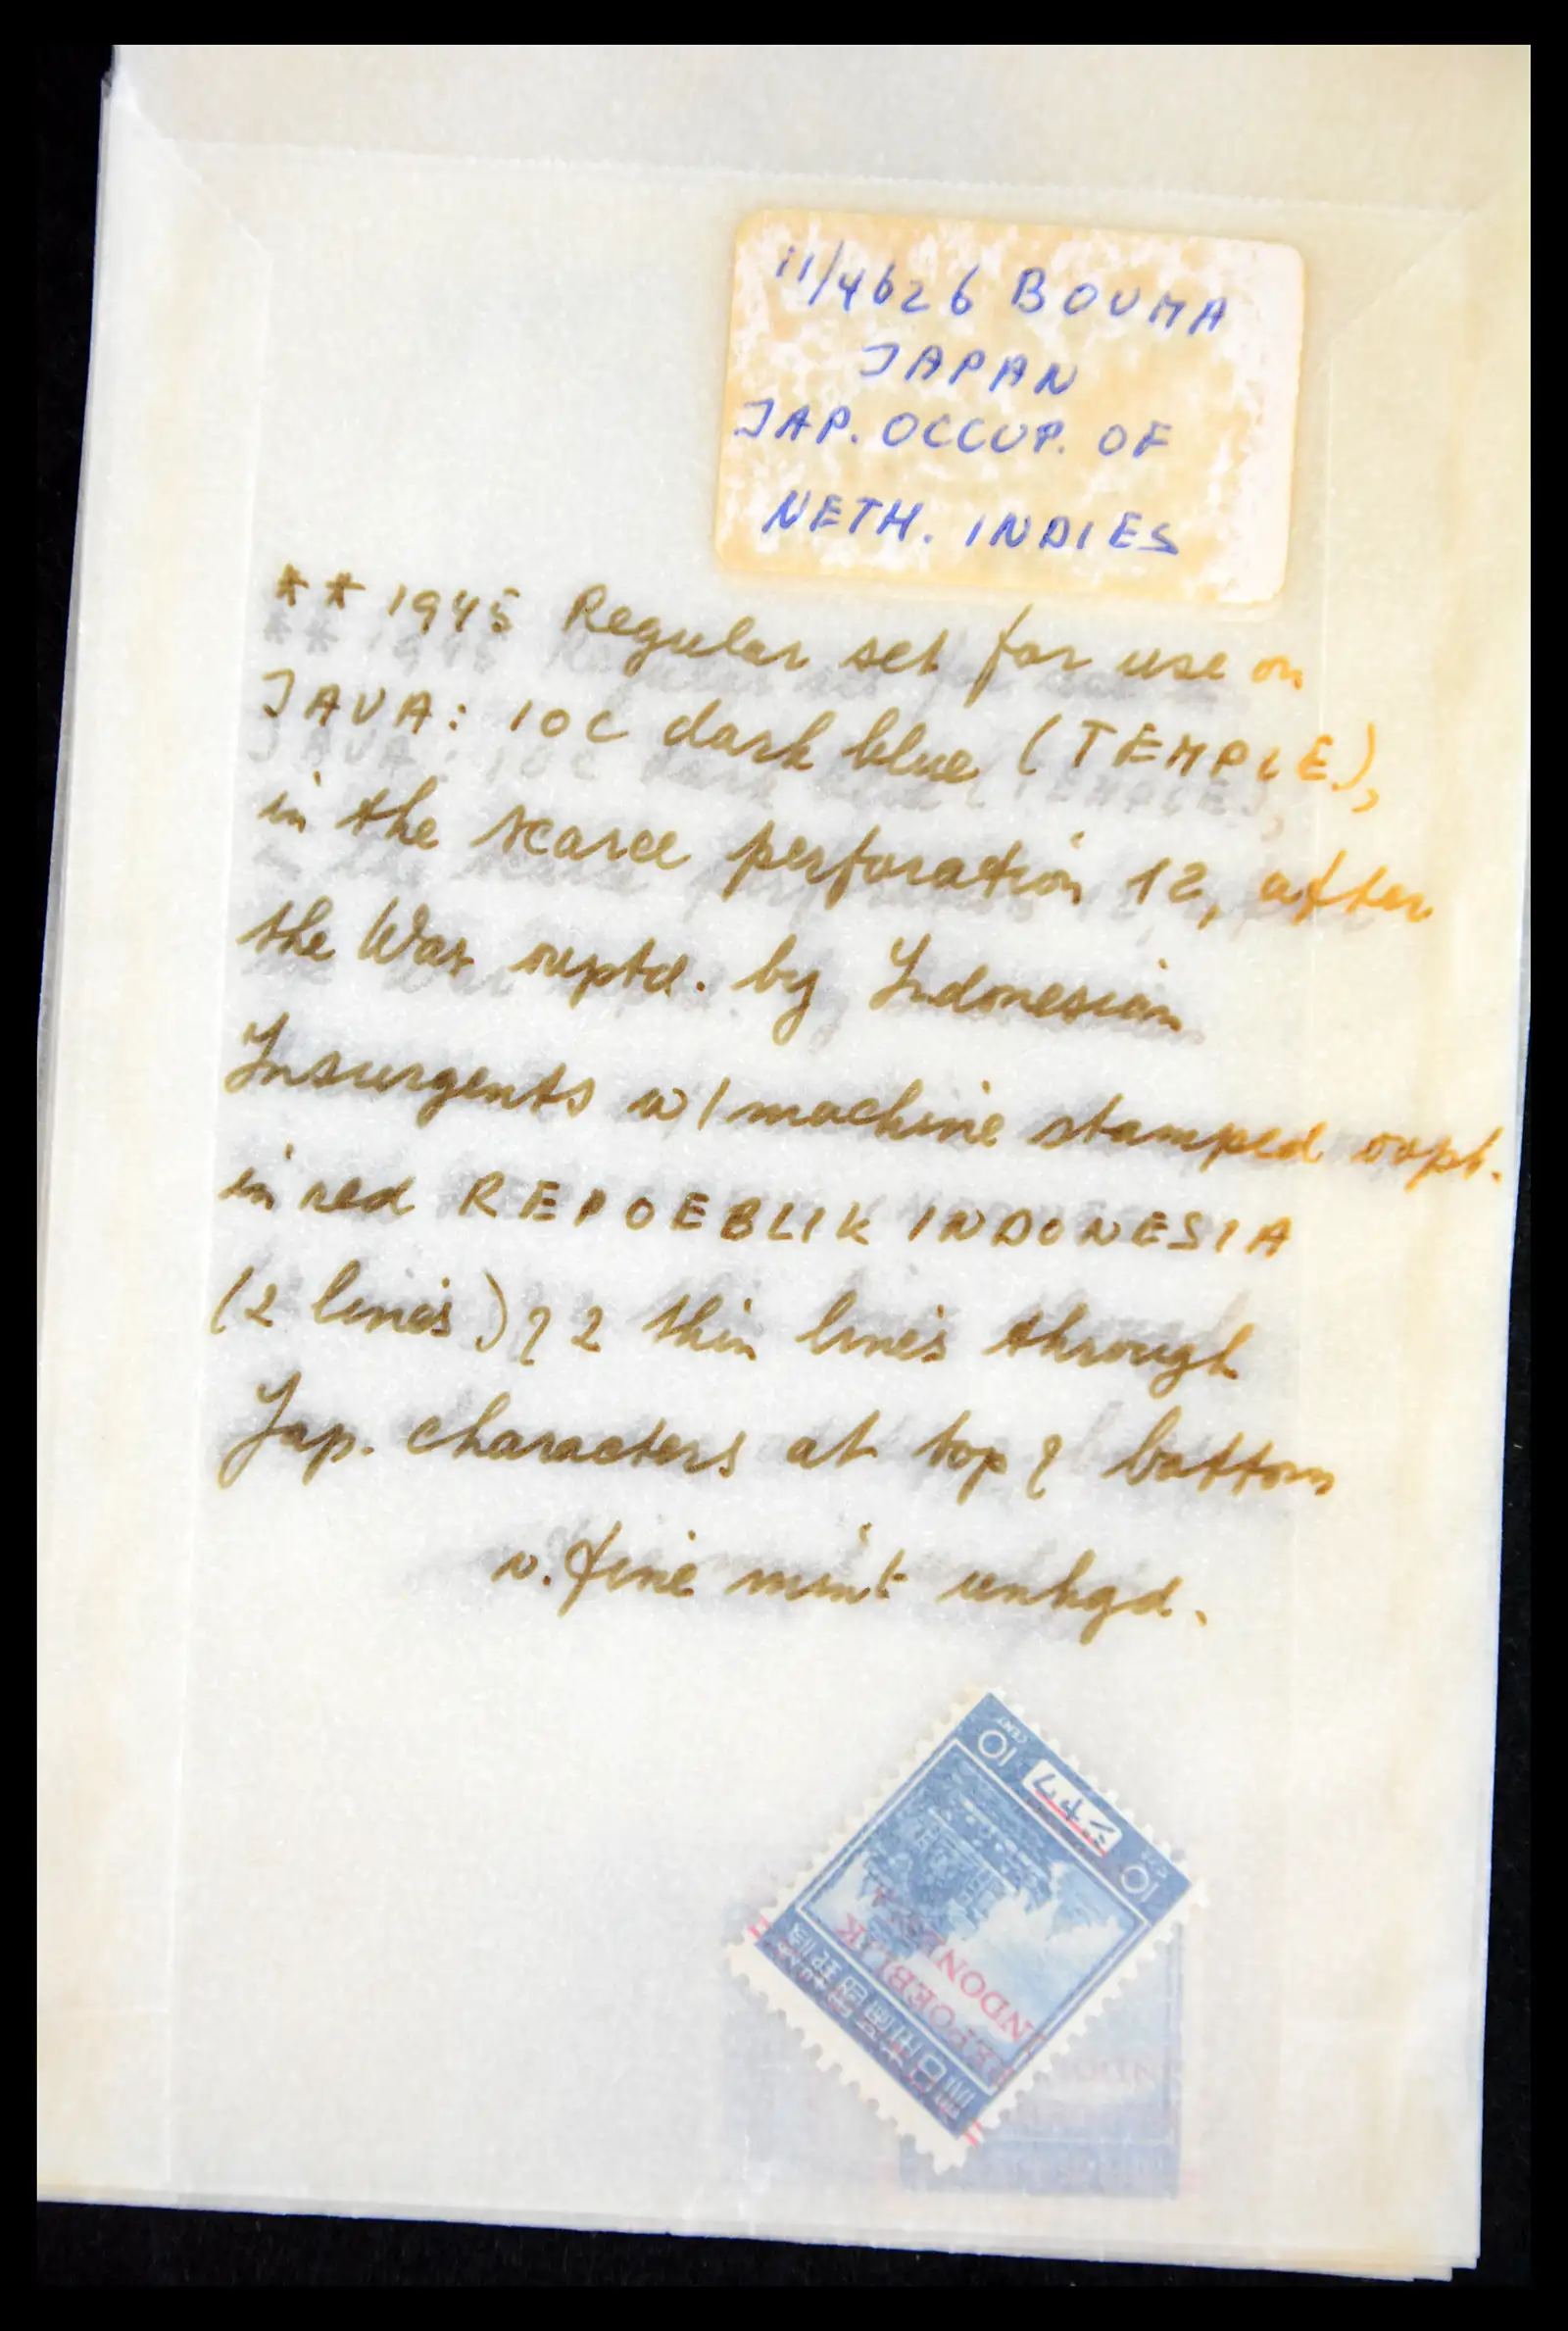 11/4626 BOUMA
JAPAN
JAP. OCCUP. OF
NETH. INDIES
** 1945 Regular set for use on
JAVA: 10C dark blue (TEMPLE),
in the scarce perforation 12, after
the War ovptd. by Indonesian
Insurgents w/machine stamped ovpt.
in red REPOEBLIK INDONESIA
(2 lines) & 2 thin lines through
Jap. characters at top & bottom
v. fine mint unhgd.
10 CENT
10
REPOEBLIK
INDONESIA